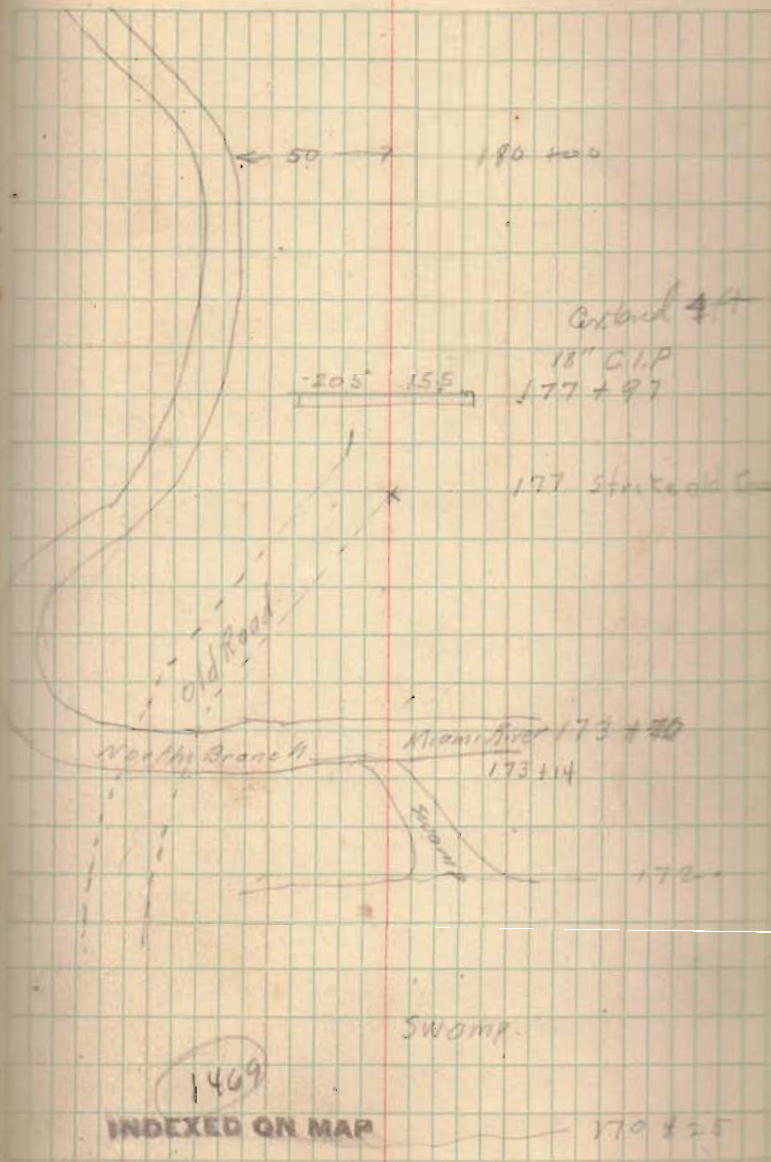 50 180 +00
Extend 4 ft
18" C.I.P
-20 5 15 5 177 + 97
177 Strikes
Old Road
North Branch Miami River 173 +
173 +14
Swamp
172
Swamp.
1469
INDEXED ON MAP 170 +25